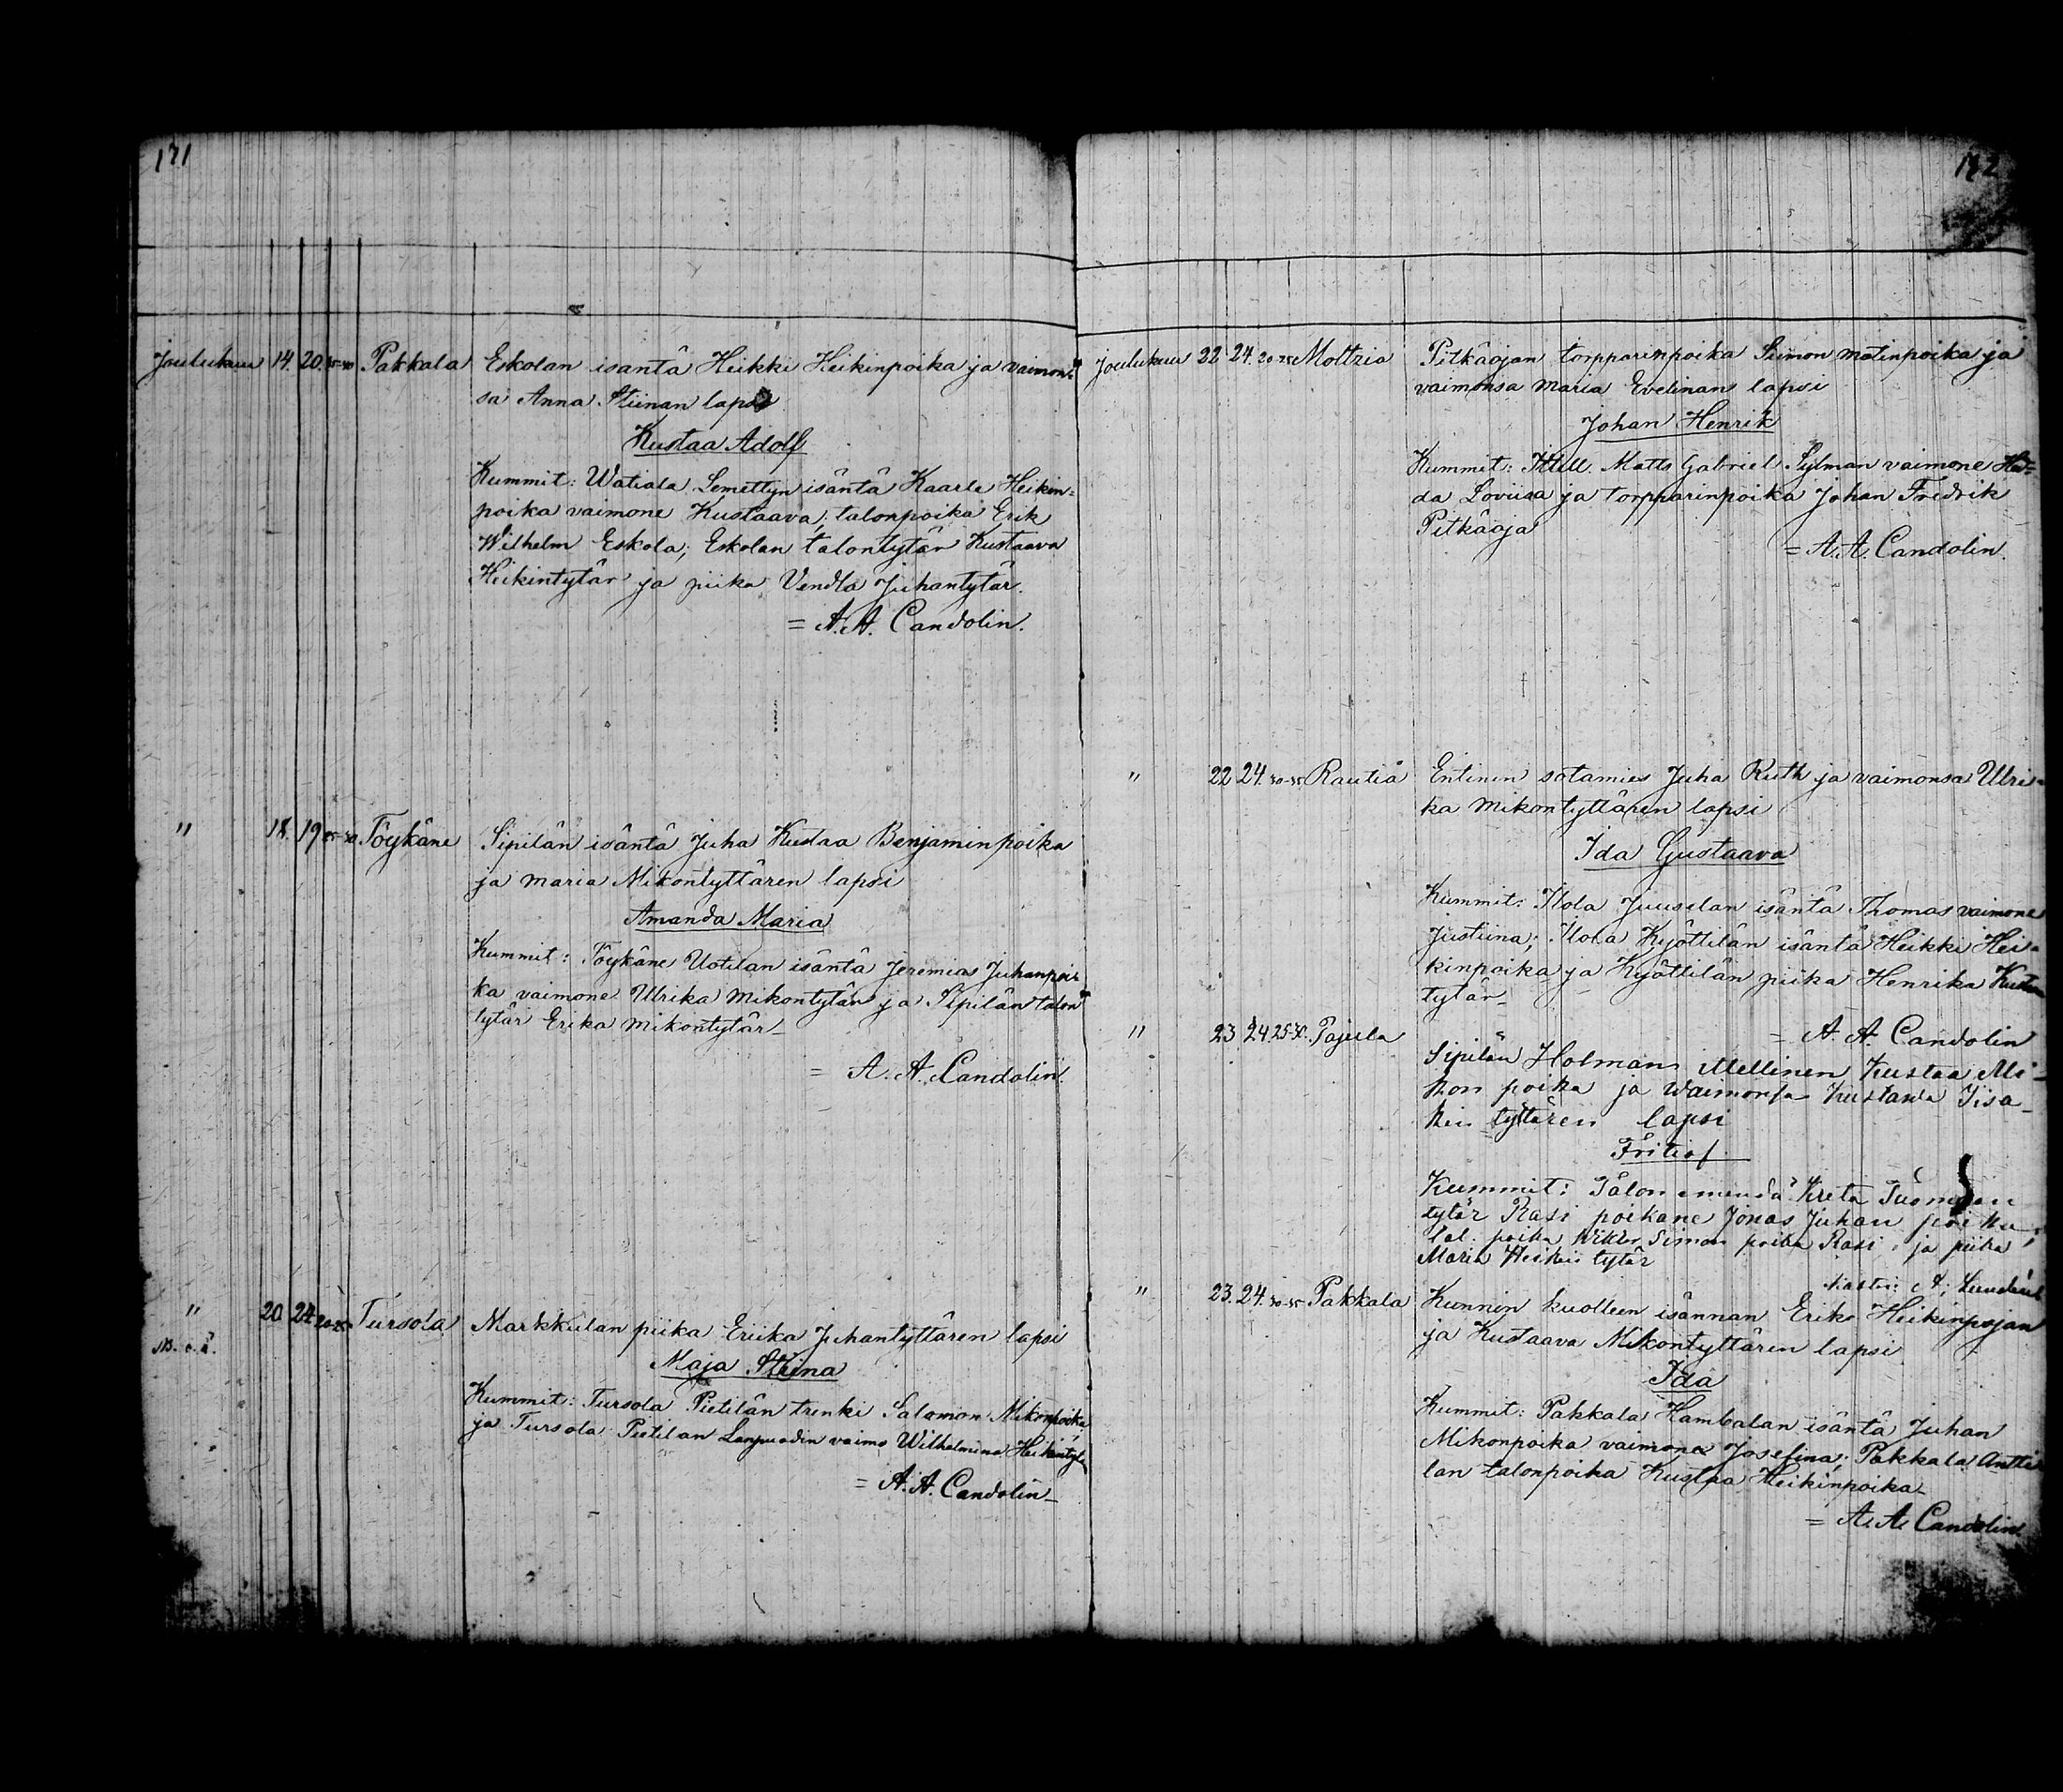 171
Joulukuu 14. 20. 35-40 Pakkala Eskolan isäntä Heikki Heikinpoika ja vaimon=
sa Anna Stiinan lapsi
Kustaa Adolf
Kummit: Watiala Semettyn isäntä Kaarle Heikin=
poika vaimone Kustaava, talonpoika Erik
Wilhelm Eskola; Eskolan talontytär Kustaava
Heikintytär ja piika Vendla Juhantytär.
= A. A. Candolin.
" 18. 19 Töykäne Sipilän isäntä Juha Kustaa Benjaminpoika
ja Maria Mikontyttären lapsi
Amanda Maria
Kummit: Töykäne Uotilan isäntä Jeremias Juhanpoi=
ka vaimone Ulrika Mikontytär ja Sipilän talon
tytär Erika Mikontytär_
= A. A. Candolin.
" 20 24 20-25 Tursola Markkulan piika Eriika Juhantyttären lapsi
Maja Stiina
Kummit: Tursola Pietilän trenki Salomon Mikonpoika
ja Tursola Pietilan vaimo Wilhelmina Heikintyt
= A. A. Candolin_
172
Joulukuu 22 24. 20-25 Moltzia Pitkäojan torpparinpoika Simon Matinpoika ja
vaimonsa Maria Evelinan lapsi
Johan Henrik
Kummit: Itell. Matts Gabriel Sylman vaimone He=
da Loviisa ja torpparinpoika Johan Fredrik
Pitkäoja
= A. A. Candolin.
" 22 24. 30-35 Rautia Entinen sotamies Juha Ruth ja vaimonsa Ulri=
ka Mikontyttären lapsi
Ida Gustaava
Kummit: Ilola Juuselan isäntä Thomas vaimone
Justiina; Ilola Kyöttilän isäntä Heikki Hei=
kinpoika ja Kyöttilän piika Henrika Kustaan
tytär_
= A. A. Candolin
" 23. 24. 25-30. Pajula Sipilän Holman itellinen Kustaa Mi_
kon poika ja waimonsa Kustawa Iisa_
kin tyttären lapsi
Fritiof
Kummit: Talon emendä Kreta Tuomaan
tytär Rasi poikane Jonas Juhan poika;
tal. poika Wiktor Simon poika Rasi, ja piika
Maria Heikin tytär
Kastoi: A;
" 23. 24. 30-35 Pakkala Kunnin kuolleen isännan Erik Heikinpojan
ja Kustaava Mikontyttären lapsi
Ida
Kummit: Pakkala Hambalan isäntä Juhan
Mikonpoika vaimone Josefina; Pakkala Antti
lan talonpoika Kustaa Heikinpoika_
= A. A. Candolin